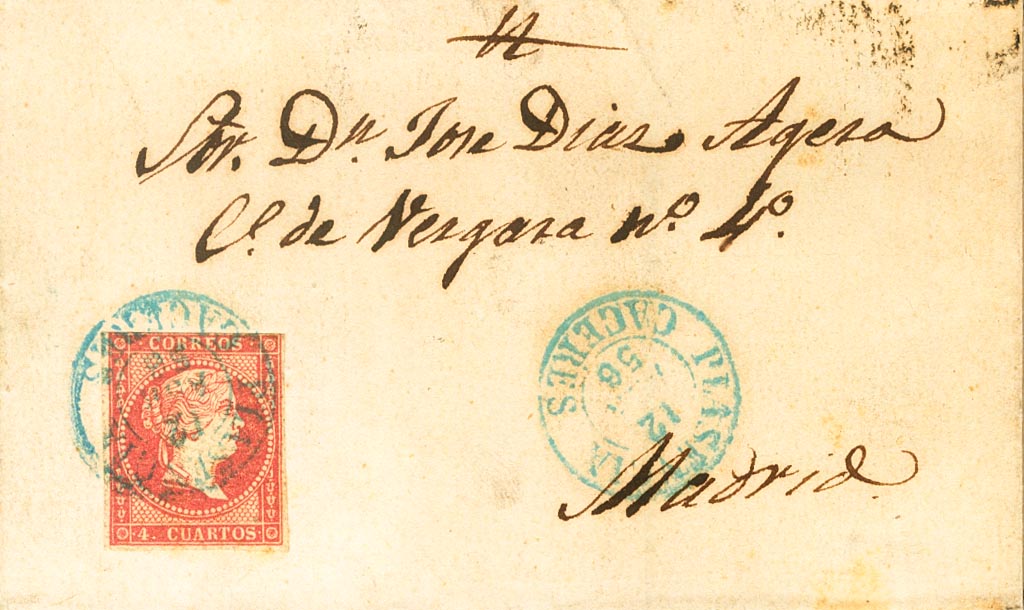 n
Sor. Dn. Jose Diaz Agero
Cl. de Vergara nº. 4º.
CORREOS
4. CUARTOS
CACERES
12
56
Madrid.